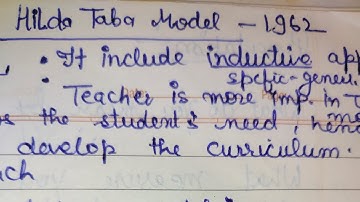 Hilda Taba Model - 1962
• It include inductive app
specfic-gener.
• Teacher is more imp. in T
the student's need, hen
develop the curriculum.
ach